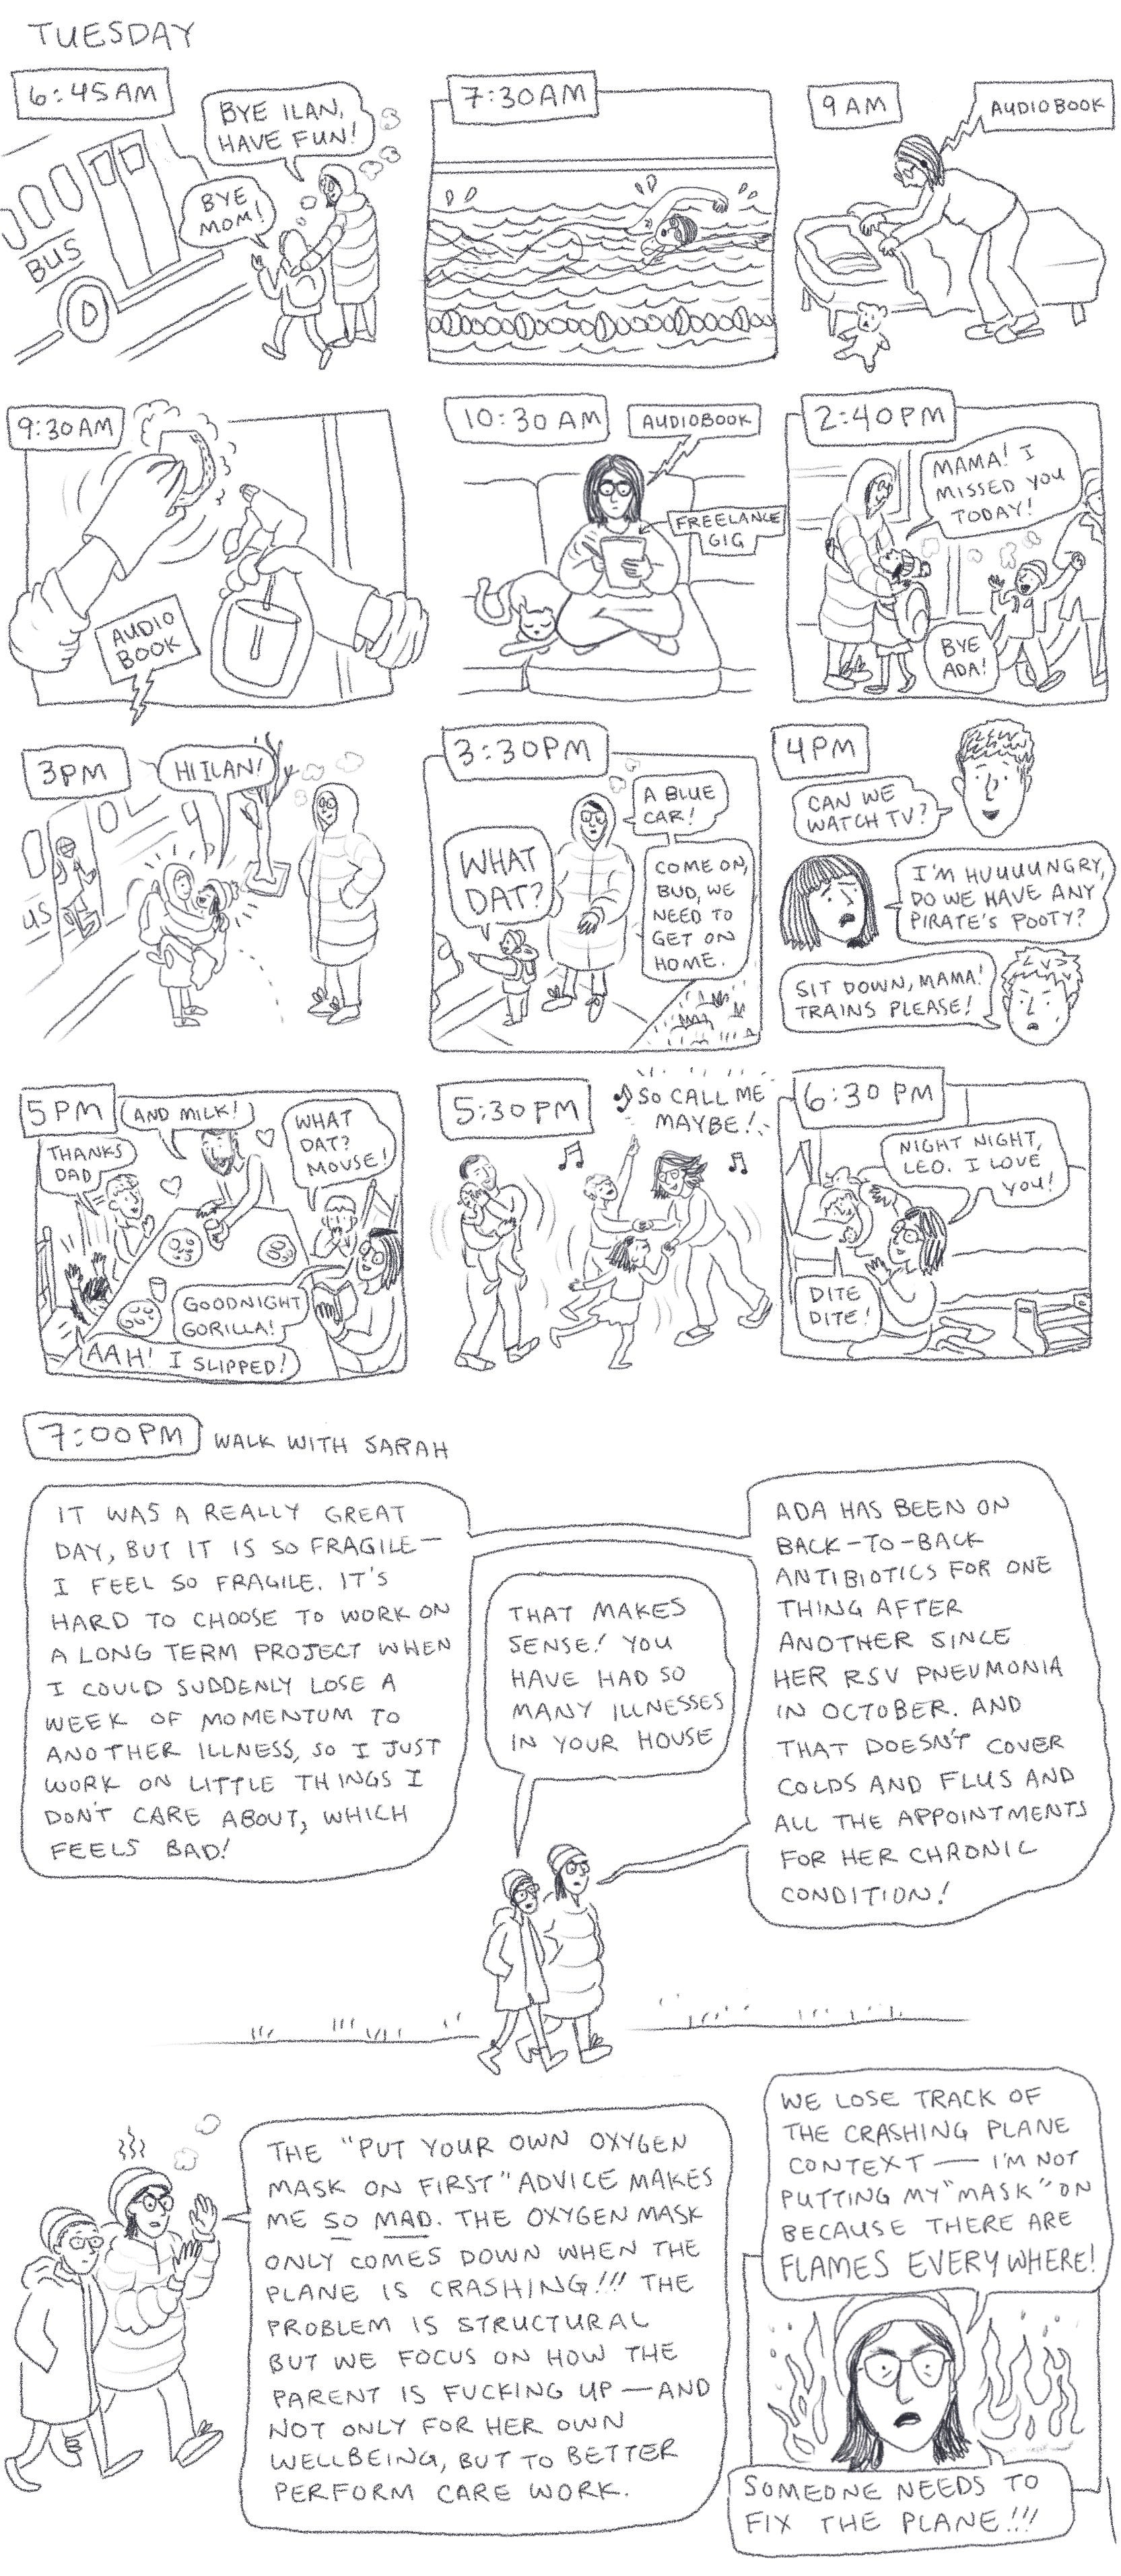 TUESDAY
6:45AM
BYE ILAN,
HAVE FUN!
BYE
MOM!
BUS
7:30AM
9AM
AUDIOBOOK
9:30AM
AUDIO
BOOK
10:30 AM
AUDIOBOOK
FREELANCE
GIG
2:40PM
MAMA! I
MISSED YOU
TODAY!
BYE
ADA!
3PM
HI ILAN!
US
3:30PM
A BLUE
CAR!
WHAT
DAT?
COME ON,
BUD, WE
NEED TO
GET ON
HOME.
4PM
CAN WE
WATCH TV?
I'M HUUUUNGRY,
DO WE HAVE ANY
PIRATE'S POOTY?
SIT DOWN, MAMA!
TRAINS PLEASE!
5PM
AND MILK!
THANKS
DAD
WHAT
DAT?
MOUSE!
GOODNIGHT
GORILLA!
AAH! I SLIPPED!
5:30PM
SO CALL ME
MAYBE!
6:30 PM
NIGHT NIGHT,
LEO. I LOVE
YOU!
DITE
DITE!
7:00PM WALK WITH SARAH
IT WAS A REALLY GREAT
DAY, BUT IT IS SO FRAGILE—
I FEEL SO FRAGILE. IT'S
HARD TO CHOOSE TO WORK ON
A LONG TERM PROJECT WHEN
I COULD SUDDENLY LOSE A
WEEK OF MOMENTUM TO
ANOTHER ILLNESS, SO I JUST
WORK ON LITTLE THINGS I
DON'T CARE ABOUT, WHICH
FEELS BAD!
THAT MAKES
SENSE! YOU
HAVE HAD SO
MANY ILLNESSES
IN YOUR HOUSE
ADA HAS BEEN ON
BACK-TO-BACK
ANTIBIOTICS FOR ONE
THING AFTER
ANOTHER SINCE
HER RSV PNEUMONIA
IN OCTOBER. AND
THAT DOESN'T COVER
COLDS AND FLUS AND
ALL THE APPOINTMENTS
FOR HER CHRONIC
CONDITION!
THE "PUT YOUR OWN OXYGEN
MASK ON FIRST" ADVICE MAKES
ME SO MAD. THE OXYGEN MASK
ONLY COMES DOWN WHEN THE
PLANE IS CRASHING!!! THE
PROBLEM IS STRUCTURAL
BUT WE FOCUS ON HOW THE
PARENT IS FUCKING UP—AND
NOT ONLY FOR HER OWN
WELLBEING, BUT TO BETTER
PERFORM CARE WORK.
WE LOSE TRACK OF
THE CRASHING PLANE
CONTEXT — I'M NOT
PUTTING MY "MASK" ON
BECAUSE THERE ARE
FLAMES EVERYWHERE!
SOMEONE NEEDS TO
FIX THE PLANE!!!